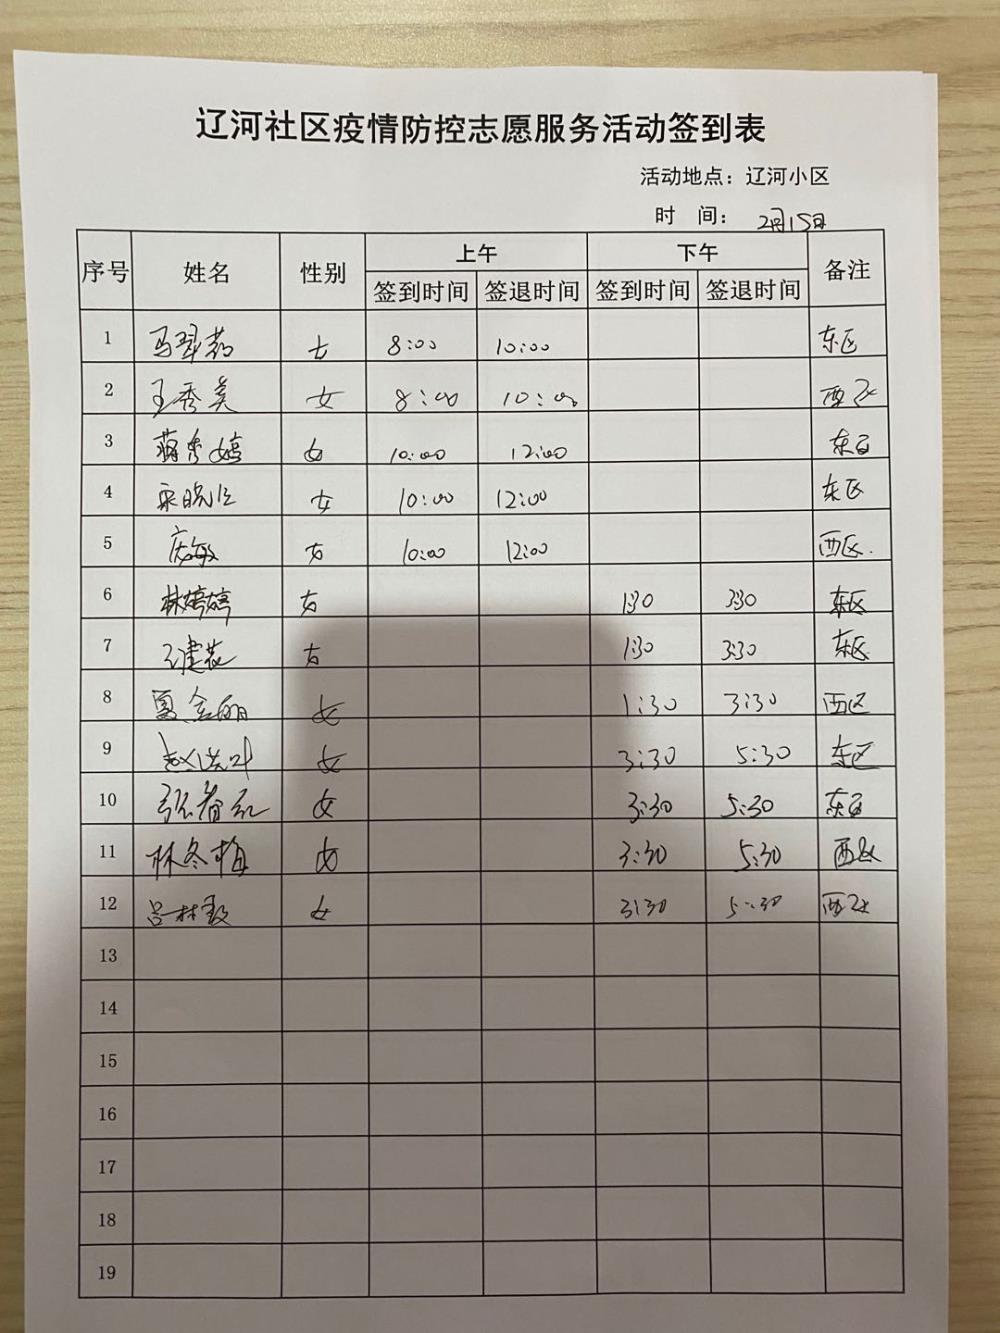 辽河社区疫情防控志愿服务活动签到表
活动地点：辽河小区
时 间： 2月15日
序号 姓名 性别 上午 下午 备注
签到时间 签退时间 签到时间 签退时间
1 女 8:00 10:00 东区
2 王秀英 女 8:00 10:00 西区
3 女 10:00 12:00 东区
4 女 10:00 12:00 东区
5 女 10:00 12:00 西区.
6 林婷婷 女 1:30 3:30 东区
7 王建花 女 1:30 3:30 东区
8 夏金丽 女 1:30 3:30 西区
9 女 3:30 5:30 东区
10 女 3:30 5:30 东区
11 林冬梅 女 3:30 5:30 西区
12 女 3:30 5:30 西区
13
14
15
16
17
18
19